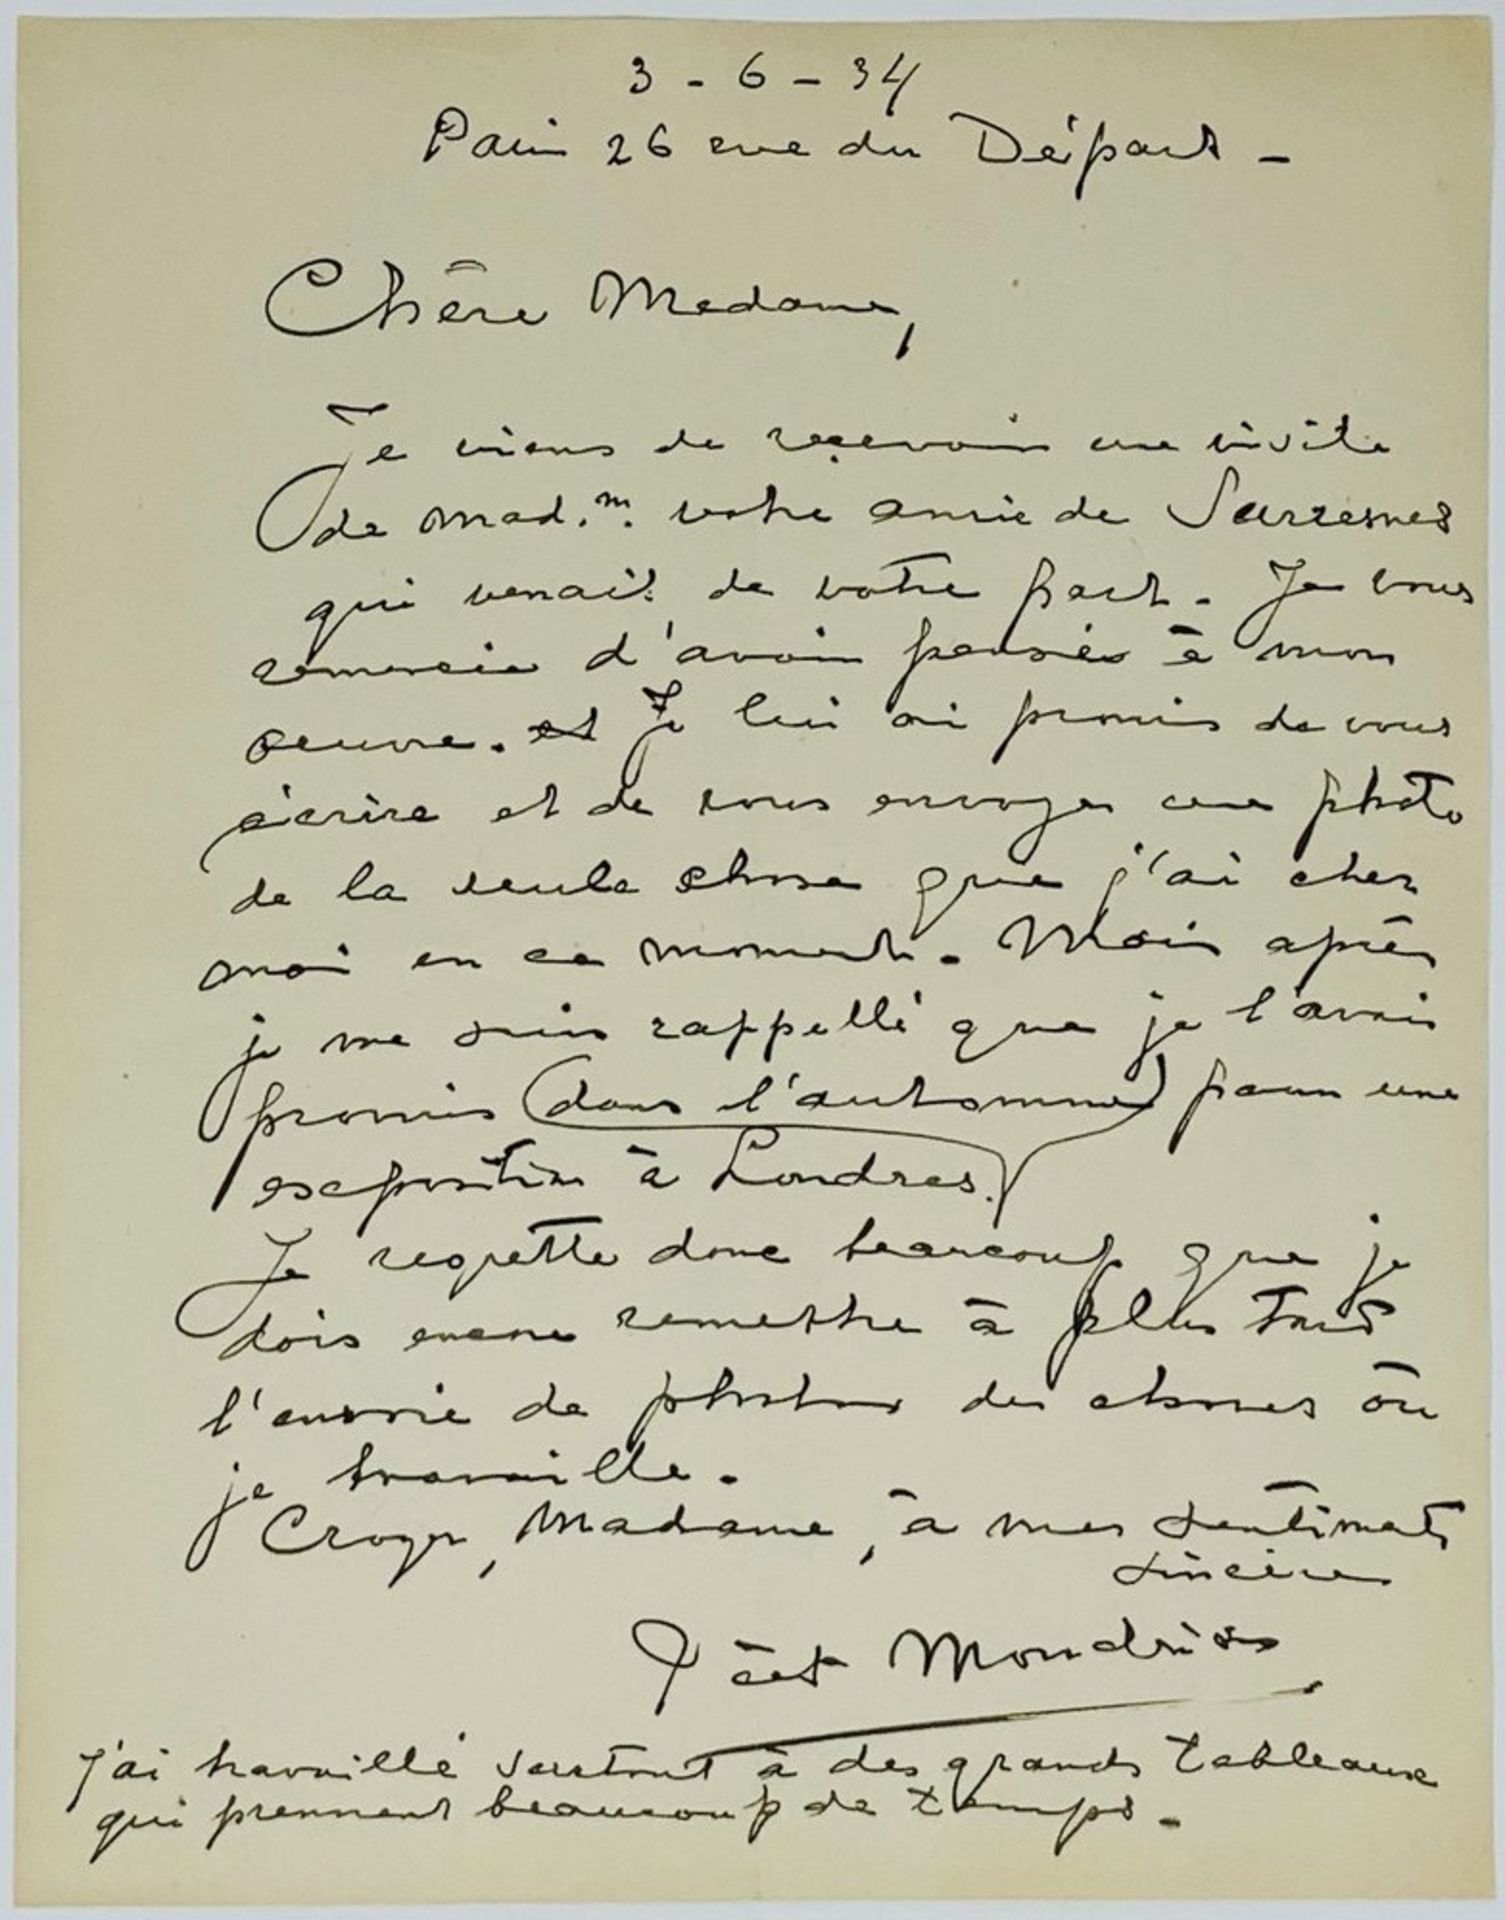 3 - 6 - 34
Paris 26 rue du Départ -
Chère Madame,
Je viens de recevoir une visite
de Mad.m. votre amie de Surresnes
qui venait de votre part. Je vous
remercie d'avoir pensée à mon
oeuvre. et Je lui ai promis de vous
écrire et de vous envoyer une photo
de la seule chose que j'ai chez
moi en ce moment. Mais après
je me suis rappellé que je l'avais
promis (dans l'automne) pour une
exposition à Londres.
Je regrette donc beaucoup que je
dois encore remettre à plus tard
l'envoie de photos des choses où
je travaille.
Croyez, Madame, à mes sentiments
sincères
Piet Mondrian
J'ai travaillé surtout à des grands tableaux
qui prennent beaucoup de temps.